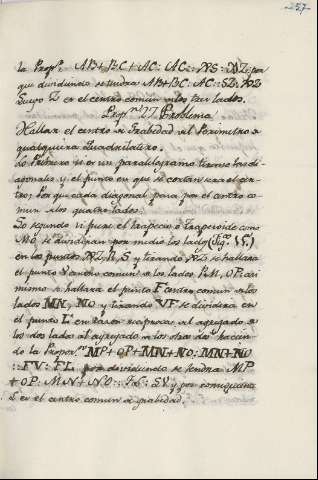 257
la Prop.n AB+BC+AC: AC:: NS: NZ por
que dividiendo se tendra AB+BC: AC:: SZ: NZ
Luego Z es el centro comun de los tres lados.
Prop.n 77 Problema
Hallar el centro de Grabedad del Perimetro de
qualquiera Quadrilatero.
Lo Primero si es un paralelogramo tirense las dia
gonales y el punto en que se cortan sera el cen
tro; Porque cada diagonal pasa por el centro co
mun de los quatro lados.
Lo segundo si fuese el trapecio o Trapezoide como
NO, se dividiran por medio los lados (Fig.
en los puntos R, S, y tirando se hallara
el punto V centro comun de los lados P.M, OP. asi
mismo se hallara el punto F centro comun de los
lados MN, NO y tirando VF se dividira en
el punto L en razon reciproca del agregado de
los dos lados al agregado de los otros dos hacien
do la Propor.n MP+OP+MN+NO: MN+NO
:: FV: FL. por dividiendo se tendra MP
+OP: MN+NO:: y por consiguiente
L es el centro comun de grabedad.